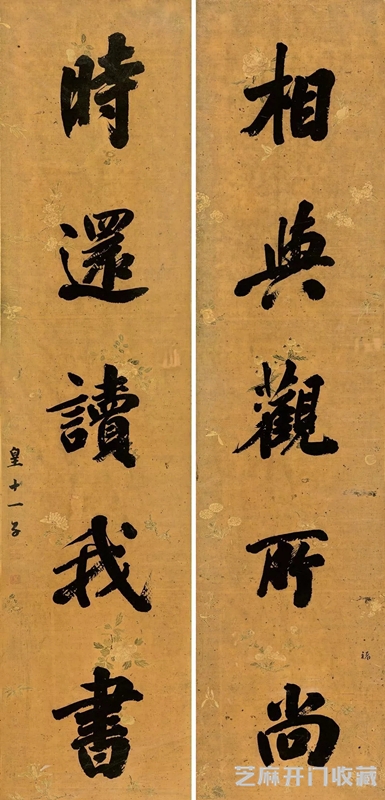 相與觀所尚
時還讀我書
皇十一子
芝麻开门收藏